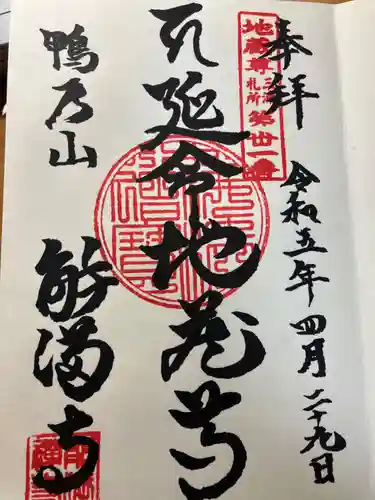 奉拝
令和五年四月二十九日
地蔵尊
三浦
札所
第廿一番
延命地蔵尊
鴨乃山
能満寺